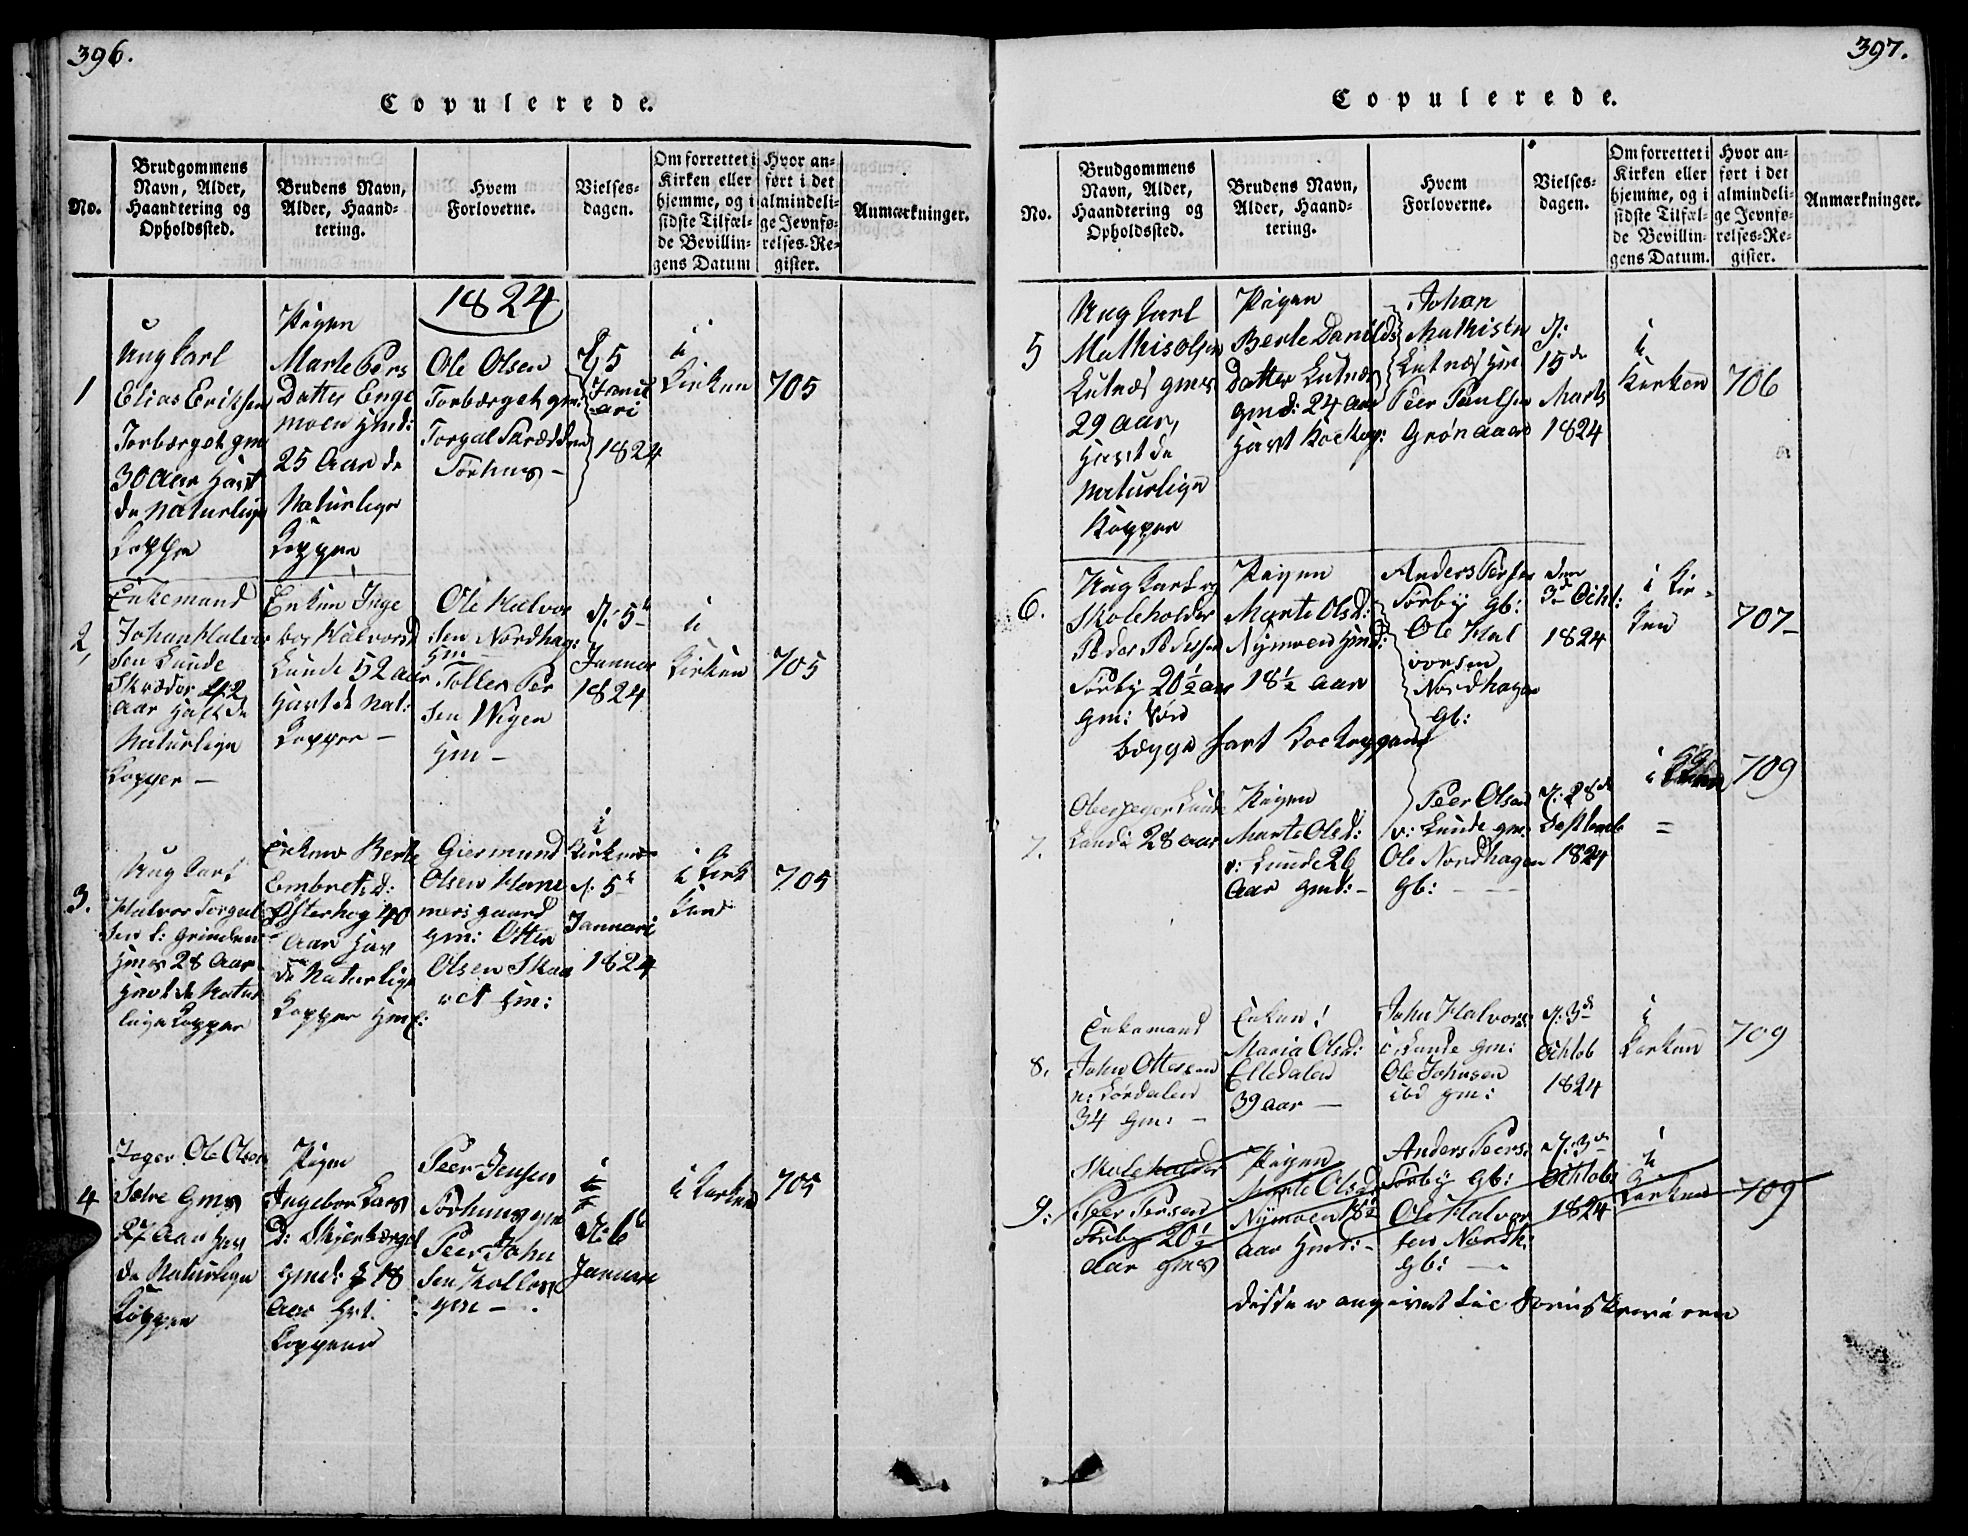 396.
Copulerede.
No.
Brudgommens
Navn, Alder,
Haandtering og
Opholdssted.
Brudens Navn,
Alder, Haand-
tering.
Hvem
Forloverne.
Vielses-
dagen.
Om forrettet i
Kirken eller
hjemme, og i
sidste Tilfæl-
de Bevillin-
gens Datum
Hvor an-
ført i det
almindeli-
ge Jevnfø-
relses-Re-
gister.
Anmærkninger.
1824
1
Ung karl
Elias Eriksen
Torbærget gm
30 Aar havt
de Naturlige
Kopper
Pigen
Marte Pers
Datter Enge
moen Hmd:
25 Aar de
Naturlige
Kopper
Ole Olsen
Torbærget gm:
Torgal
Sørhus –
5
Janu
ari
1824
i
Kirken
705
2,
Enkemand
Johan Halvor
sen Lunde
Skræder 42
Aar havt de
Naturlige
Kopper –
Enken Inge
bor Halvorsd
Lunde 52 aar
havt de Nat:
Kopper –
Ole Halvor
sen Nordhag:
gm –
Tollef Per
sen Wigen
Hm –
d: 5te
Januar
1824
i
Kirken
705
3.
Ung karl
Halvor Torgal
sen Grinden
Hmes 28 Aar
havt de Natur
lige Kopper
Enken Berte
Embret d:
Østerhog 40
Aar hav
de Naturlige
Kopper Hmd:
Giermund
Olsen Hame
mersgaard
gm: Otter
Olsen Skaa
ret Hm:
i
Kirken
d: 5te
Januari
1824
i Kirk
ken
705
4
Jeger Ole Olsen
Sætre Gmes
27 Aar hav
de Naturlige
Kopper
Pigen
Ingebor Lars
D: Skjerbærget
gmd: 18
Aar hvt:
Kopperne
Peer Jensen
Sørhus gm
Peer John
sen
gm – .
i
d: 6te
Januari
i Kirken
705
397.
Copulerede.
No.
Brudgommens
Navn, Alder,
Haandtering og
Opholdssted.
Brudens Navn,
Alder, Haand-
tering.
Hvem
Forloverne.
Vielses-
dagen.
Om forrettet i
Kirken eller
hjemme, og i
sidste Tilfæl-
de Bevillin-
gens Datum.
Hvor an-
ført i det
almindeli-
ge Jevnfø-
relses-Re-
gister.
Anmærkninger.
5
Ung karl
Mathis Olsen
Lutnæs gmes
29 aar,
havt de
naturlige
Kopper
Pigen
Berte Danilds
Datter Lutnæs
gmd: 24 Aar
havt Kockop:
Johan
Mathisen
Lutnæs Hm
Peer Poulsen
Grønaaes
d:
15de
Marts
1824
i
Kirken
706
6.
Ung karl og
Skoleholder
Peder Pedersen
Sørby 20½ aar
gm: Søn
Pigen
Marte Olsd:
Nymoen Hmd:
18½ aar
begge havt Kockopperne
Anders Persen
Sørby gb:
Ole Hal
vorsen
Nordhagen
gb:
den
3de Octb:
1824
i Kir-
ken
707–
7.
Lunde 28 aar
Pigen
Marte Olsd:
v: Lunde 26
Aar gmd: –
Peer Olsen
v: Lunde gm:
Ole Nordhagen
gb: –
d: 28de
Septemb
1824
i
=
709
8.
Enkemand
John Ottersen
n: Lørdalen
34 gm: –
Enken!
Maria Olsd:
Elledalen
39 aar –
John Halvors:
v: Lunde gm:
Ole Johnsen
ibd gm:
d: 3de
Octob
1824
i
Kirken
709
9:
Skoleholder
Peer Persen
Sørby 20½
Aar gmes
Pigen
Marte Olsd:
Nymoen 18½
Aar Hmd: –
Anders Peers:
Sørby gb:
Ole Halvor
sen Nordh:
gb: –
d: 3de
Octob:
1824
i
Kirken
709
disse er angivet